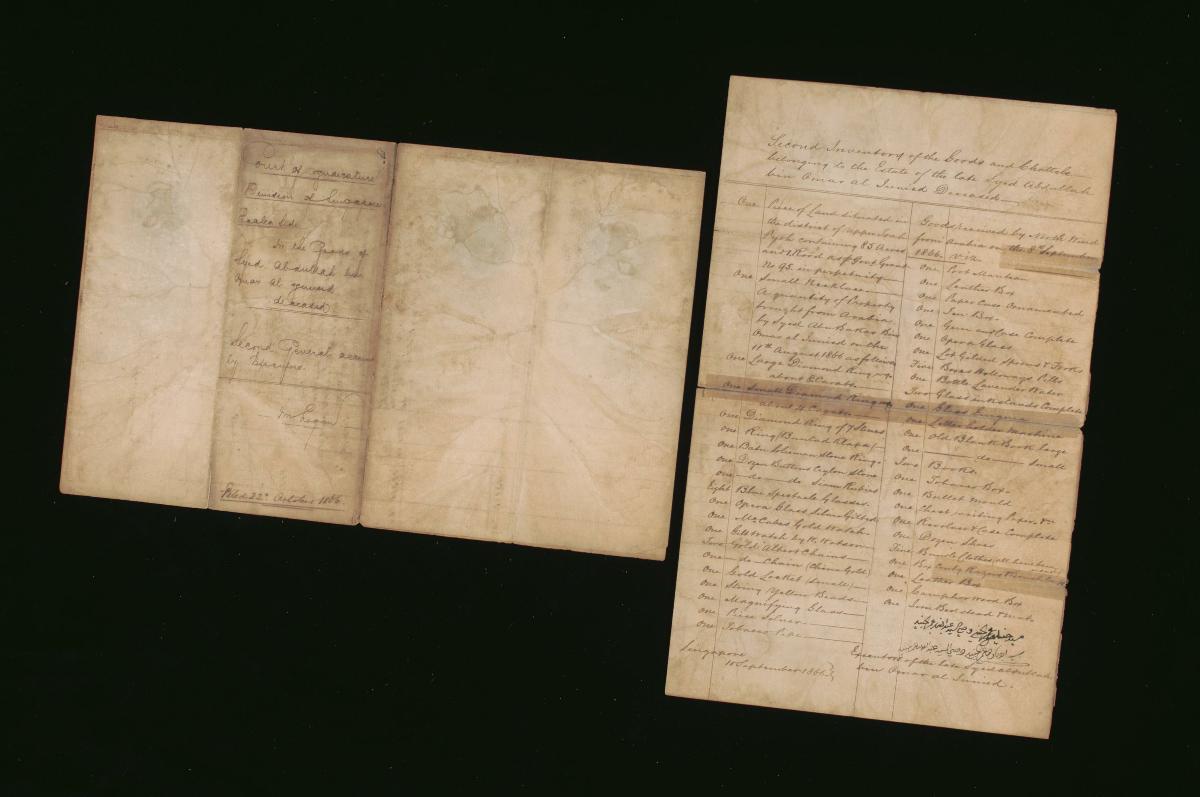 Court of Judicature
Division of Singapore
Ecclesiastical
In the Goods of
Syed Abdullah bin
Omar al Junied
deceased
Second General account
by Executors.
Filed 22nd October 1866
Second Inventory of the Goods and Chattels
belonging to the Estate of the late Syed Abdullah
bin Omar Al Junied Deceased
One Piece of Land situated in
the district of Upper
containing 85 Acres
and 1 Rood as p Govt Grant
No 95. in perpetuity
One Small Necklace
A quantity of Property
brought from Arabia
by Syed Abu Bakar Bin
Omar al Junied on the
11th August 1866 as follows
One Large Diamond Ring
about 8 Carats
One Small Diamond Ring
about 4 Carats
One Diamond Ring of 7 Stones
One Ring
One Baba Soloman Stone Ring
One Dozen Buttons Ceylon Stone
One do do Siam Rubies
Eight Blue Spectacle Glasses
One Opera Glass Silver Gilted
One McCabes Gold Watch
One Gilt Watch by R. Watson
Two Gold Albert Chains
One do Chain (China Gold)
One Gold Locket (small)
One String Yellow Beads
One Magnifying Glass
One Piece Silver
One Tobacco Pipe
Singapore
10 September 1866
Goods received by North Wind
from Arabia on the 8th September
1866 viz
One Port Manteau
One Leather Box
One Paper Case Ornamented
One Tin Box
One Gun and Case Complete
One Opera Glass
One Lot Gilted Spoons & Forks
Five Boxes Holloways Pills
One Bottle Lavender Water
Two Glass inkstands Complete
One Glass
One Letter holder Machine
One Old Blank Book large
One do small
Two Books
One Tobacco Box
One Bullet mould
One Chest writing Paper &c
One Revolver & Case Complete
One Dozen Shoes
Five Bundle Clothes
One Box Comb, Razors
One Leather Box
One Camphor wood Box
One Iron Bedstead & Mats
Executors of the late Syed Abdullah
bin Omar al Junied.